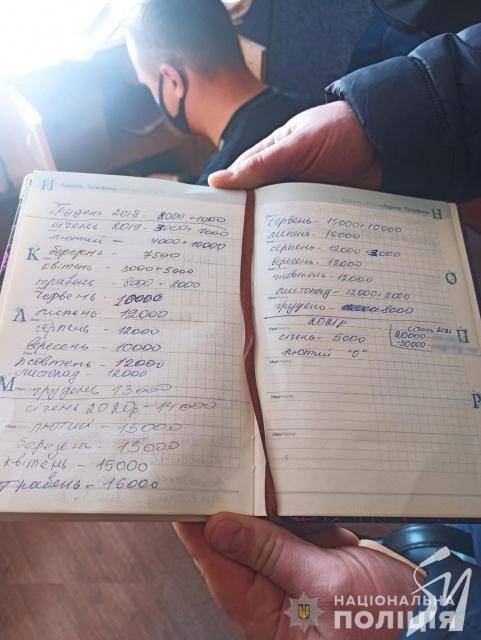 И Адреса, Телефоны
Грудень 2018 - 8000 +1000
січень 2019 - 3000 + 7000
лютий - 4000+10000
К березень - 7500
квітень - 3000+5000
травень - 8000 + 2000
червень - 10000
Л липень - 12000
серпень - 12000
вересень - 10000
жовтень - 12000
листопад - 12000
М грудень - 13000
січень 2020р - 14000
лютий - 15000
березень - 15000
квітень - 15000
травень - 16000
Адреса, Телефоны Н
червень - 15000+10000
липень - 15000
серпень - 12000 - 3000
вересень - 12000
жовтень - 12000
О
листопад - 12000 + 2000
грудень - 8000
2021р
січень - 5000
лютий "0"
січень 2021
20000
-30000
П
Р
НАЦІОНАЛЬНА
ПОЛІЦІЯ